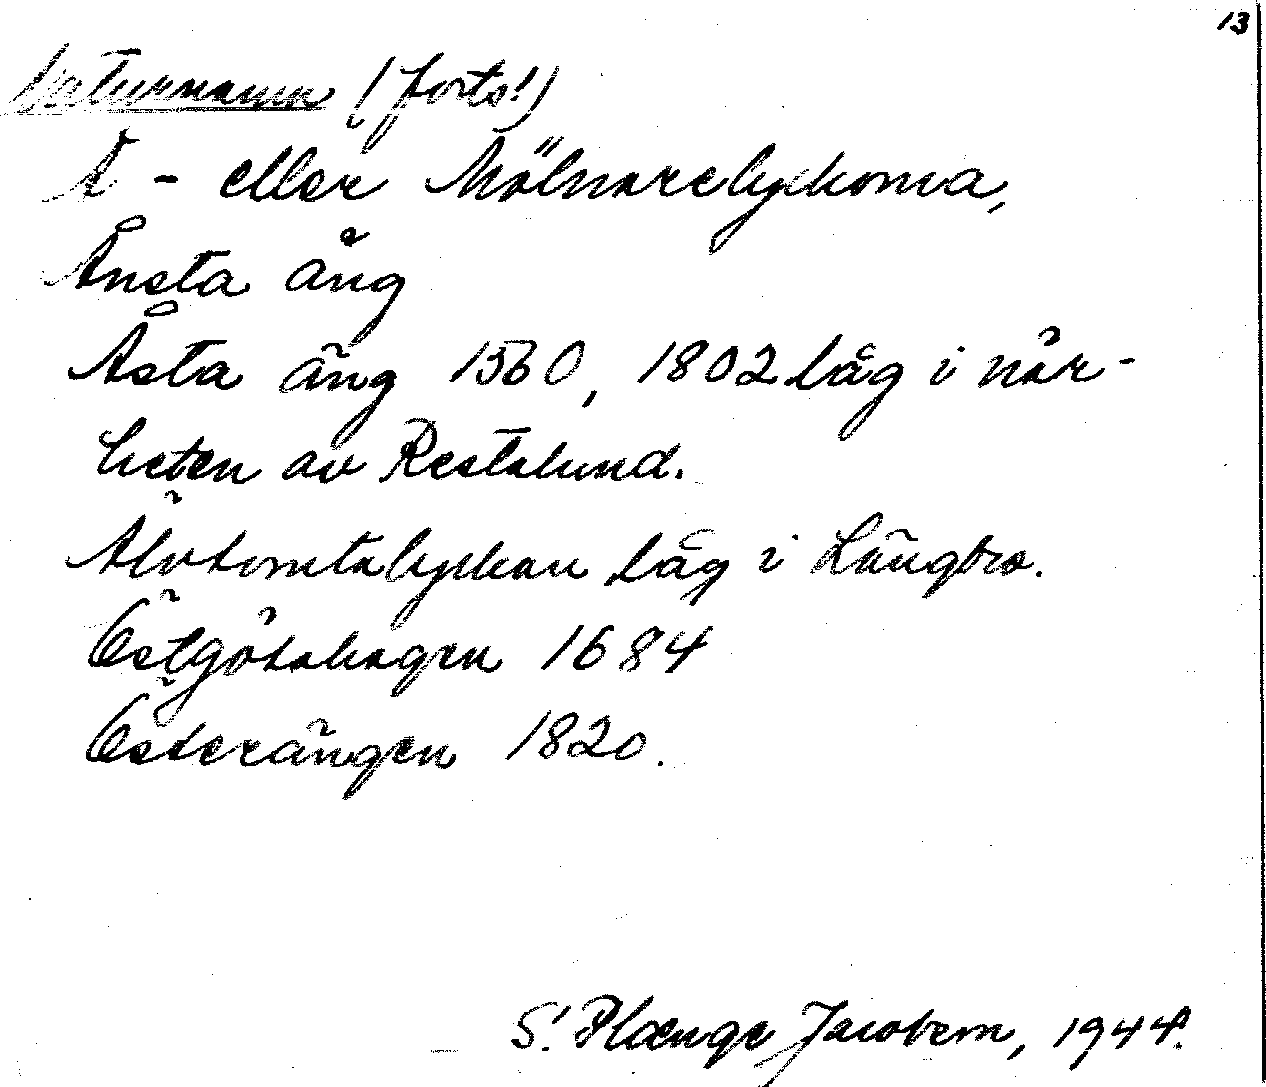 13
Naturnamn (forts!)
Å - eller Mölnarelyckorna,
Ånsta äng
Åsta äng 1560, 1802 låg i när-
heten av Restalund.
Älvtomtalyckan låg i Längbro.
Östgötahagen 1684
Österängen 1820.
S. Plænge Jacobson, 1944.